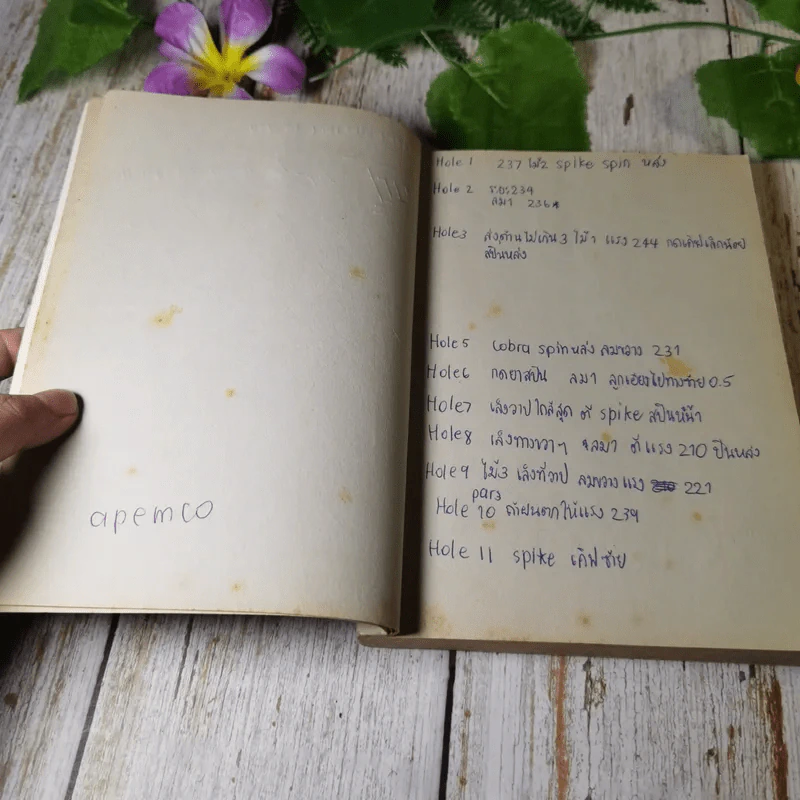 apemco
Hole 1 237 ไม้2 spike spin หลัง
Hole 2 ระยะ239
ลมา 236
Hole3 ส่งด้านไม่เกิน 3 ไม้1 แรง 244 กดเคิฟเล็กน้อย
สปินหลัง
Hole5 cobra spinหลัง ลมขวาง 231
Hole6 กดยาสปิน ลมา ลูกเอียงไปทางซ้าย 0.5
Hole7 เล็งวาปใกล้สุด ตี spike สปินหน้า
Hole8 เล็งทางขวาๆ ลมา ตีแรง 210 ปินหลัง
Hole9 ไม้3 เล็งที่วาป ลมขวาง แรง 221
par3
Hole 10 ถ้าฝนตกให้แรง 239
Hole 11 spike เคิฟซ้าย